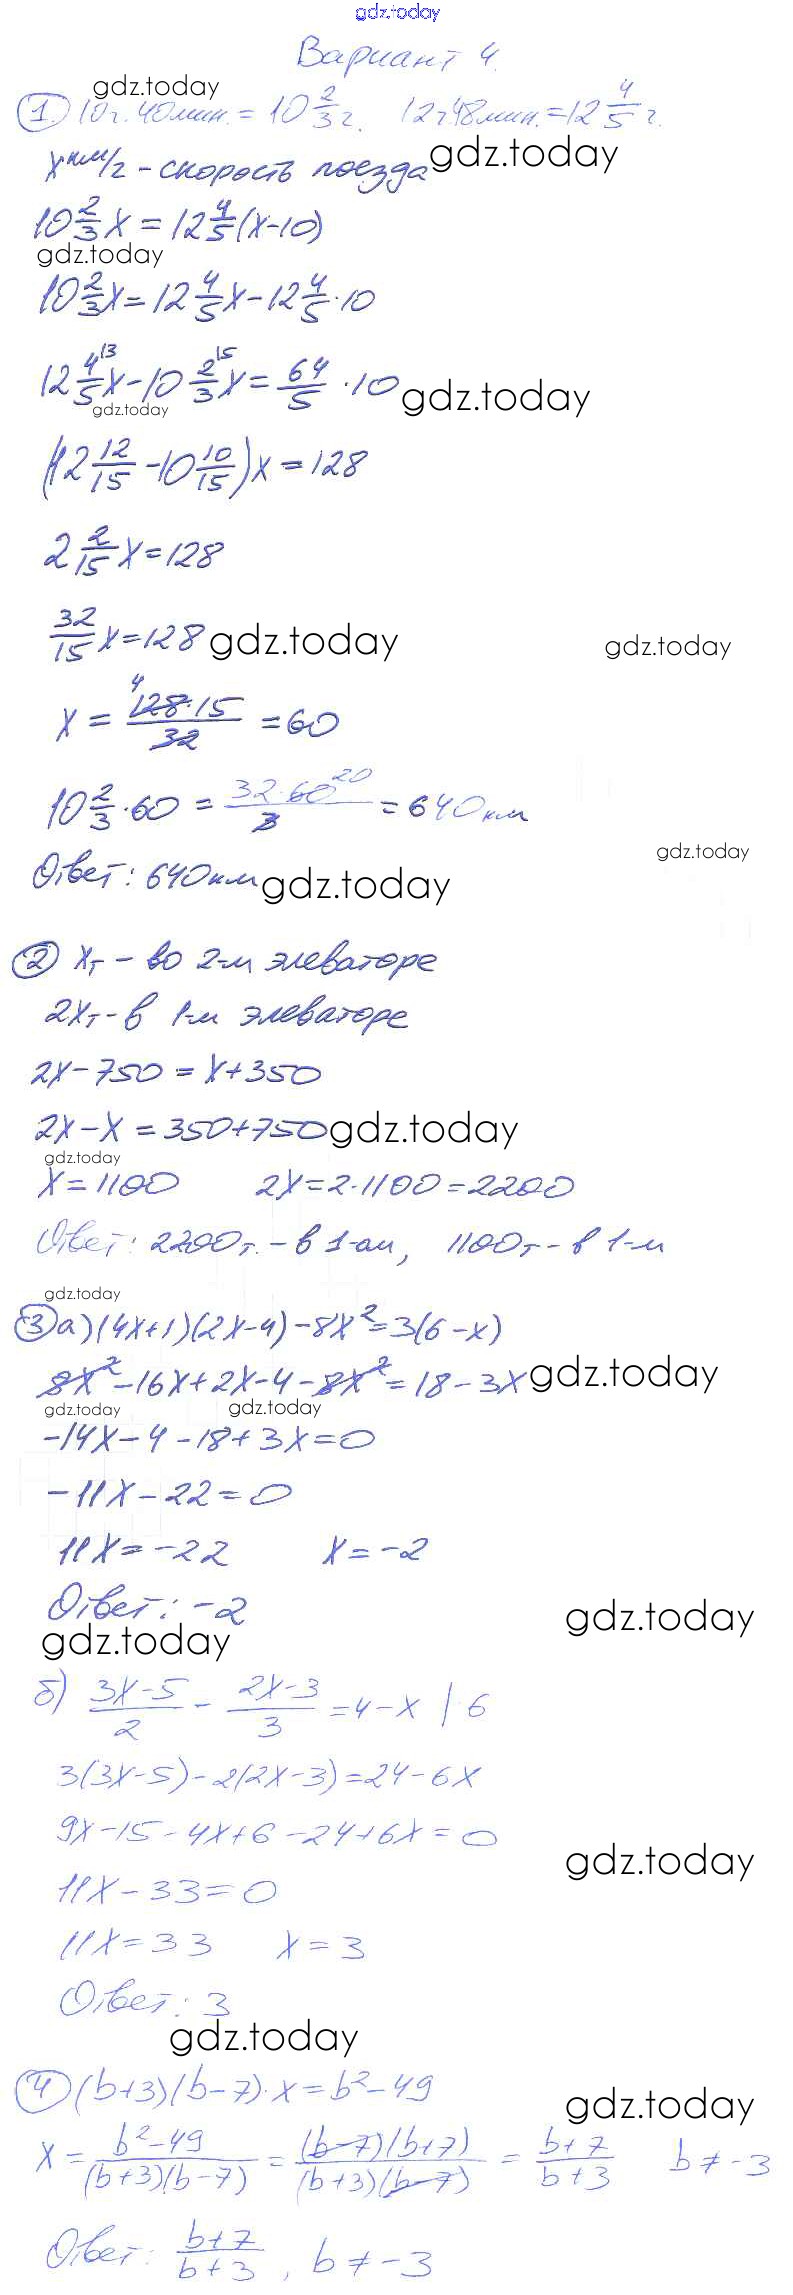 gdz.today
Вариант 4.
gdz.today
1. 10ч. 40мин. = 10 2/3 ч. 12ч 48мин. = 12 4/5 ч.
x км/ч - скорость поезда gdz.today
10 2/3 x = 12 4/5 (x-10)
gdz.today
10 2/3 x = 12 4/5 x - 12 4/5 · 10
12 4/5 x - 10 2/3 x = 64/5 · 10 gdz.today
gdz.today
(12 12/15 - 10 10/15) x = 128
2 2/15 x = 128
32/15 x = 128 gdz.today gdz.today
x = 128·15/32 = 60
10 2/3 · 60 = 32·60/3 = 640 км
gdz.today
Ответ: 640 км gdz.today
2 xт - во 2-м элеваторе
2xт - в 1-м элеваторе
2x - 750 = x + 350
2x - x = 350 + 750 gdz.today
gdz.today
x = 1100 2x = 2·1100 = 2200
Ответ: 2200т. - в 1-ом, 1100т - в 1-м
gdz.today
3 а) (4x+1)(2x-4) - 8x² = 3(6-x)
8x² - 16x + 2x - 4 - 8x² = 18 - 3x gdz.today
gdz.today gdz.today
-14x - 4 - 18 + 3x = 0
-11x - 22 = 0
11x = -22 x = -2
Ответ: -2 gdz.today
gdz.today
б) 3x-5/2 - 2x-3/3 = 4-x | 6
3(3x-5) - 2(2x-3) = 24 - 6x
9x - 15 - 4x + 6 - 24 + 6x = 0
gdz.today
11x - 33 = 0
11x = 33 x = 3
Ответ: 3
gdz.today
4 (b+3)(b-7)·x = b² - 49
gdz.today
x = b²-49/(b+3)(b-7) = (b-7)(b+7)/(b+3)(b-7) = b+7/b+3 b ≠ -3
Ответ: b+7/b+3, b ≠ -3